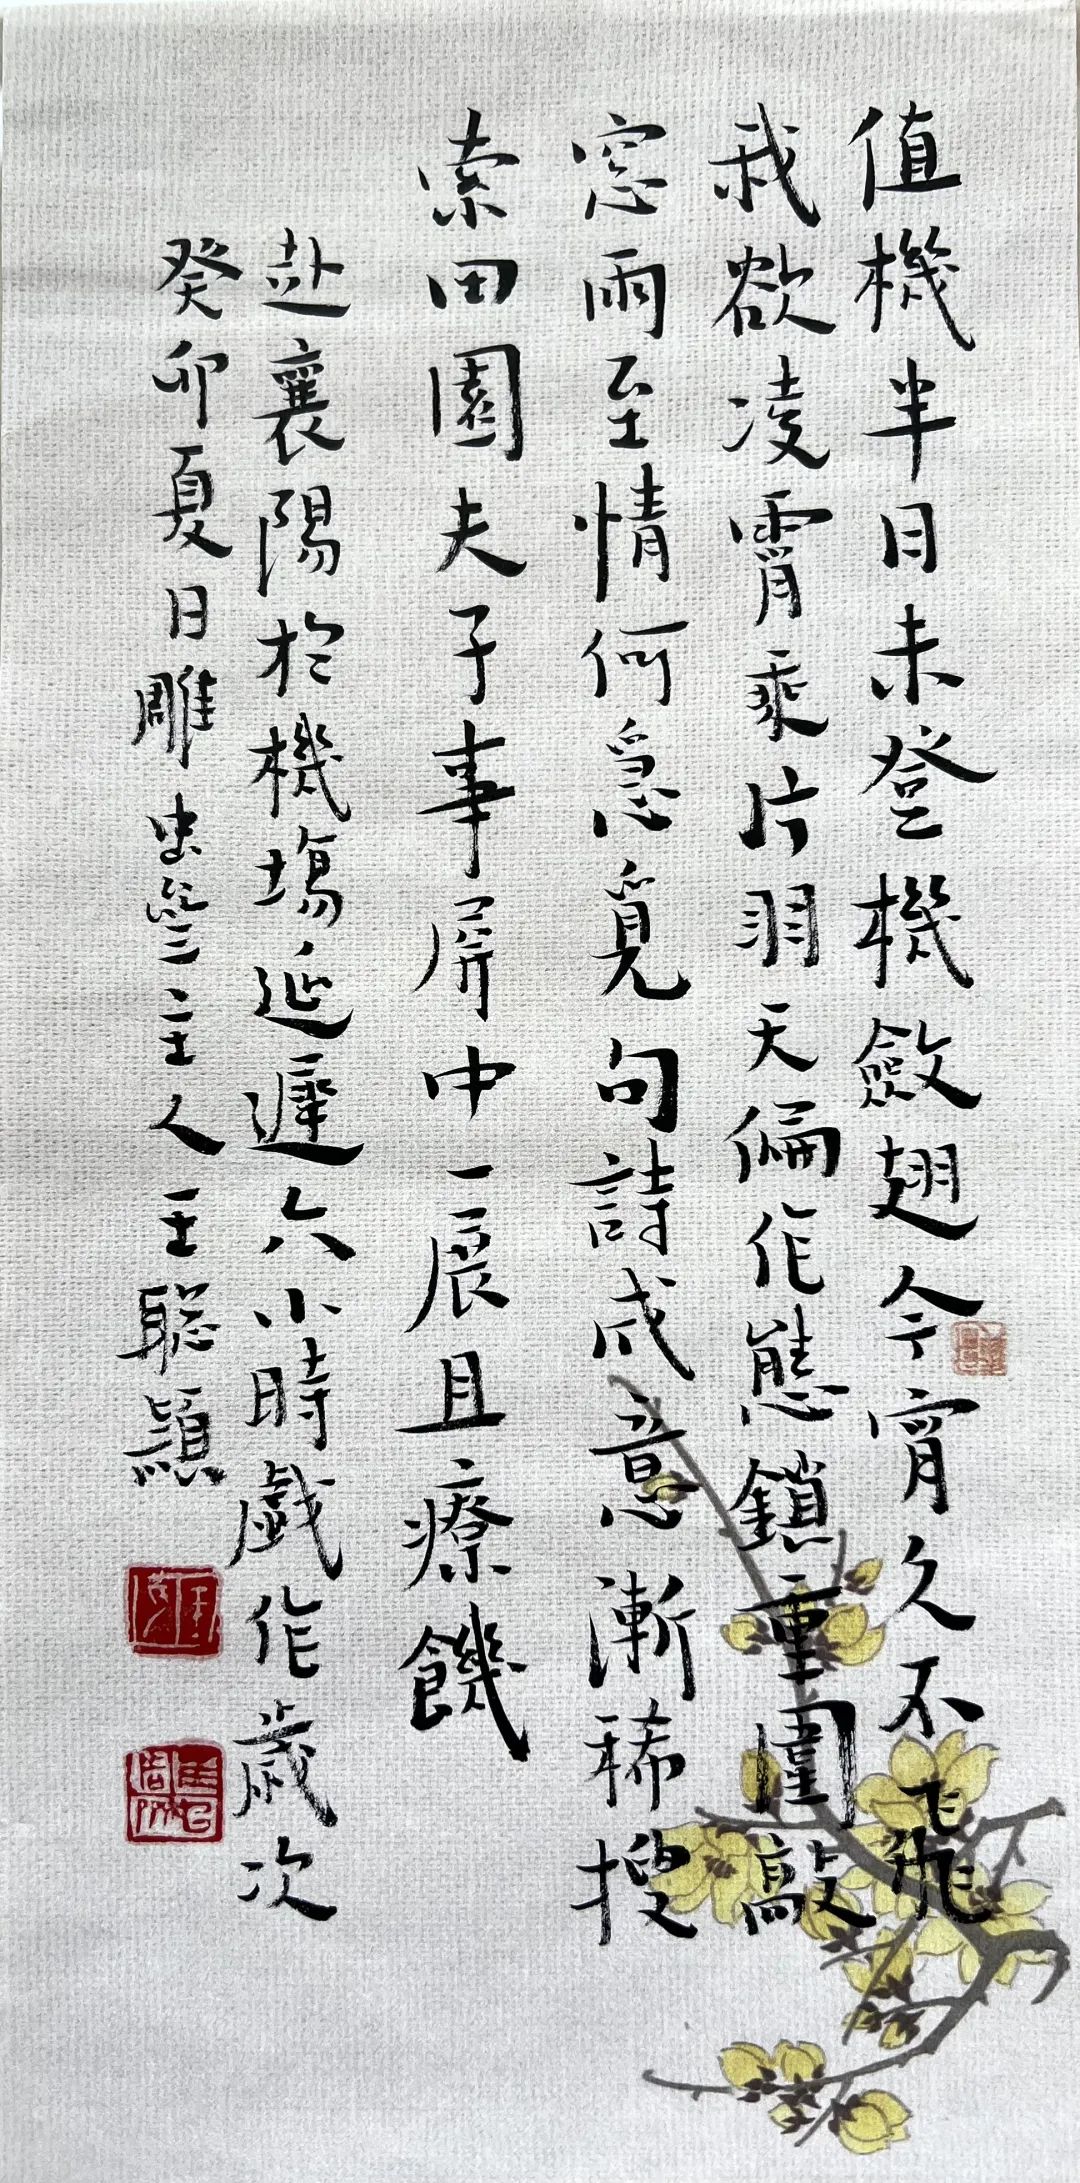 值機半日未登機斂翅今宵久不飛
我欲凌霄乘片羽天偏作態鎖重圍敲
窓雨至情何急覓句詩成意漸稀搜
索田園夫子事屏中一展且療饑
赴襄陽於機場延遲六小時戲作歲次
癸卯夏日雕虫主人王聪顯